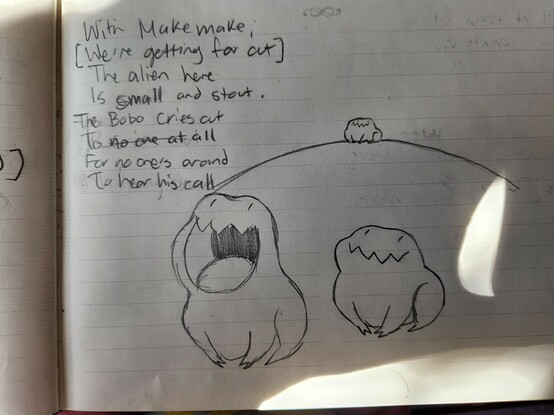 With Makemake,
[We're getting far out]
The alien here
Is small and stout.
The Bobo Cries out
To no one at all
For no one's around
To hear his call